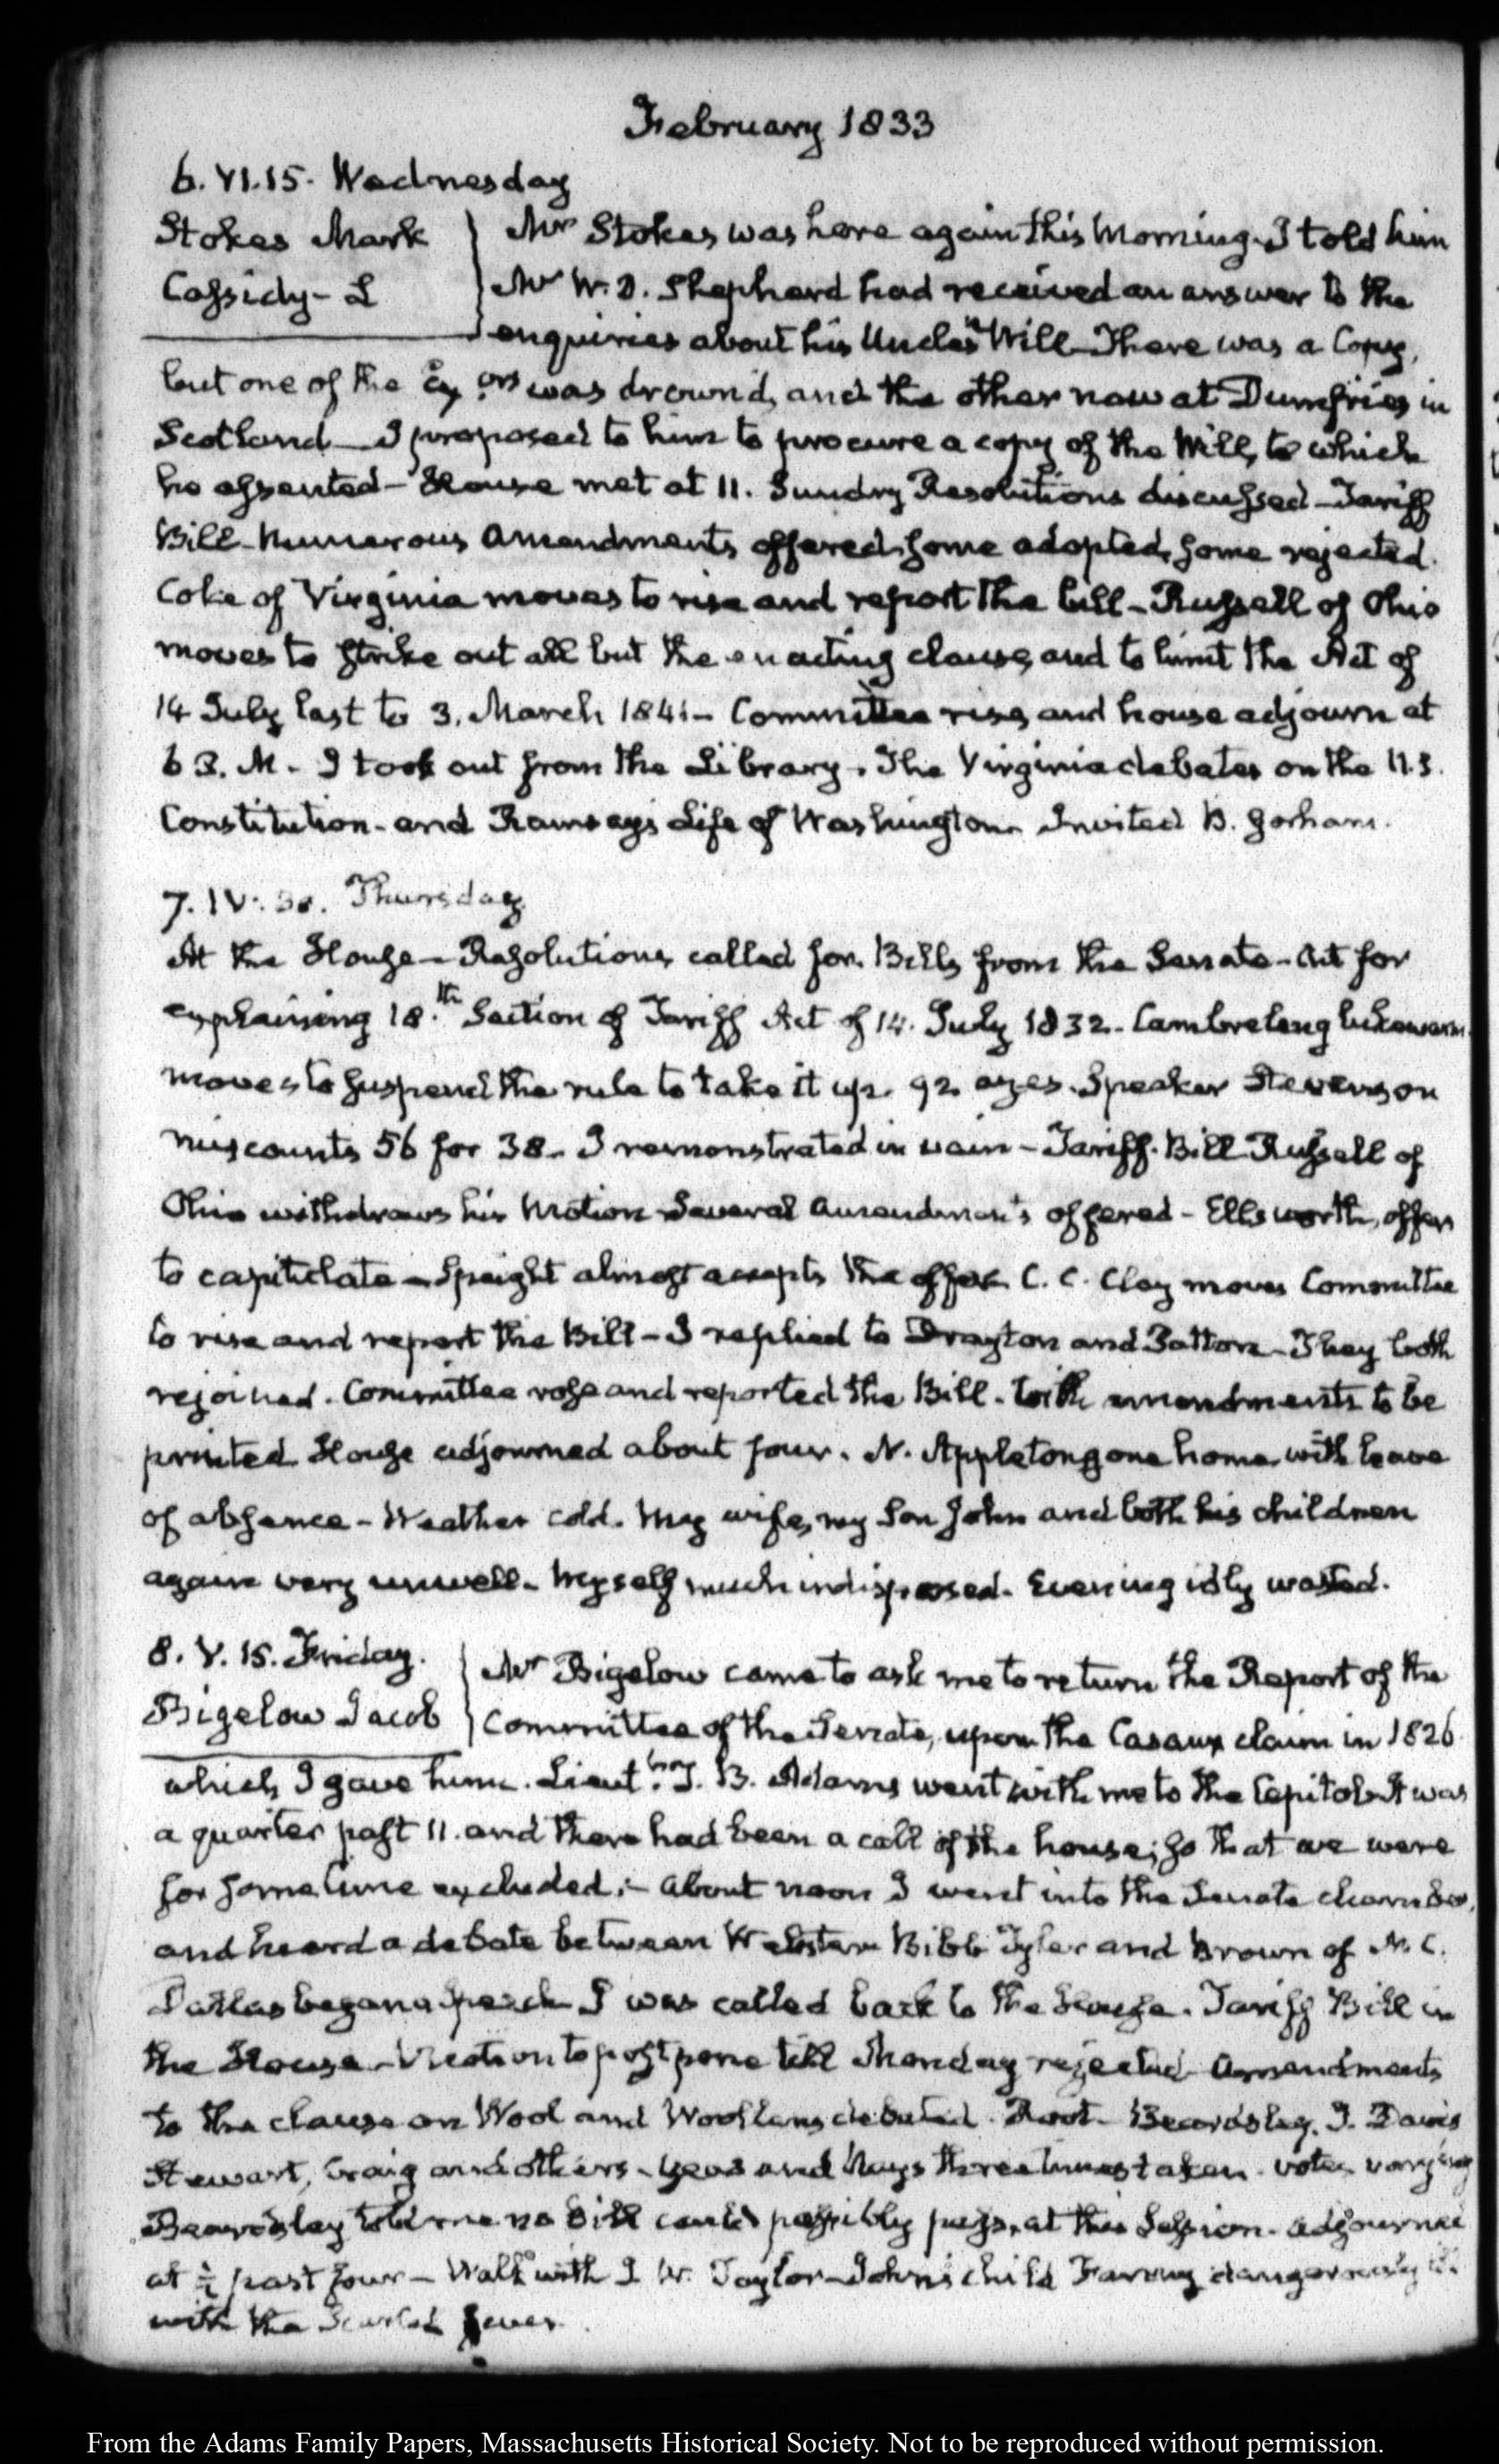 February 1833
6. VI.15. Wednesday
Stokes Mark
Cassidy - L
Mr Stokes was here again this Morning. I told him
Mr W. B. Shephard had received an answer to the
enquiries about his Uncle's Will. There was a Copy,
but one of the Ex.ors was drown'd, and the other now at Dumfries in
Scotland — I proposed to him to procure a copy of the Will, to which
he assented — House met at 11. Sundry Resolutions discussed — Tariff
Bill — Numerous Amendments offered, some adopted, some rejected.
Coke of Virginia moves to rise and report the bill — Russell of Ohio
moves to strike out all but the enacting clause, and to limit the Act of
14 July last to 3. March 1841 — Committee rise, and house adjourn at
6 P. M. — I took out from the Library. The Virginia debates on the U.S.
Constitution — and Ramsay's Life of Washington. Invited B. Gorham.
7. IV: 30. Thursday
At the House — Resolutions called for. Bills from the Senate — Act for
explaining 18.th Section of Tariff Act of 14. July 1832 — Cambreleng
moves to suspend the rule to take it up. 92 ayes. Speaker Stevenson
miscounts 56 for 38 — I remonstrated in vain — Tariff. Bill Russell of
Ohio withdraws his Motion Several Amendments offered — Ellsworth, offers
to capitulate — Speight almost accepts the offer. C. C. Clay moves Committee
to rise and report the Bill — I replied to Drayton and Patton — They both
rejoined. Committee rose and reported the Bill. with amendments to be
printed House adjourned about four. N. Appleton gone home with leave
of absence — Weather cold. My wife, my Son John and both his children
again very unwell — Myself much indisposed. Evening idly wasted.
8. V. 15. Friday.
Bigelow Jacob
Mr Bigelow came to ask me to return the Report of the
Committee of the Senate, upon the Cazaux claim in 1826
which I gave him. Lieut.t T. B. Adams went with me to the Capitol. It was
a quarter past 11. and there had been a call of the house; so that we were
for some time excluded; — About noon I went into the Senate chamber,
and heard a debate between Webster Bibb Tyler and Brown of N. C.
Dallas began a Speech I was called back to the House. Tariff Bill in
the House — Motion to postpone till Monday rejected Amendments
to the clause on Wool and Woollens debated. Root — Beardsley. J. Davis
Stewart, Craig and others — Yeas and Nays three times taken. votes varying
Beardsley told me no Bill could possibly pass, at this Session — adjourned
at ½ past four — Walk with J W. Taylor — John's child Fanny dangerously ill
with the Scarlet fever.
From the Adams Family Papers, Massachusetts Historical Society. Not to be reproduced without permission.